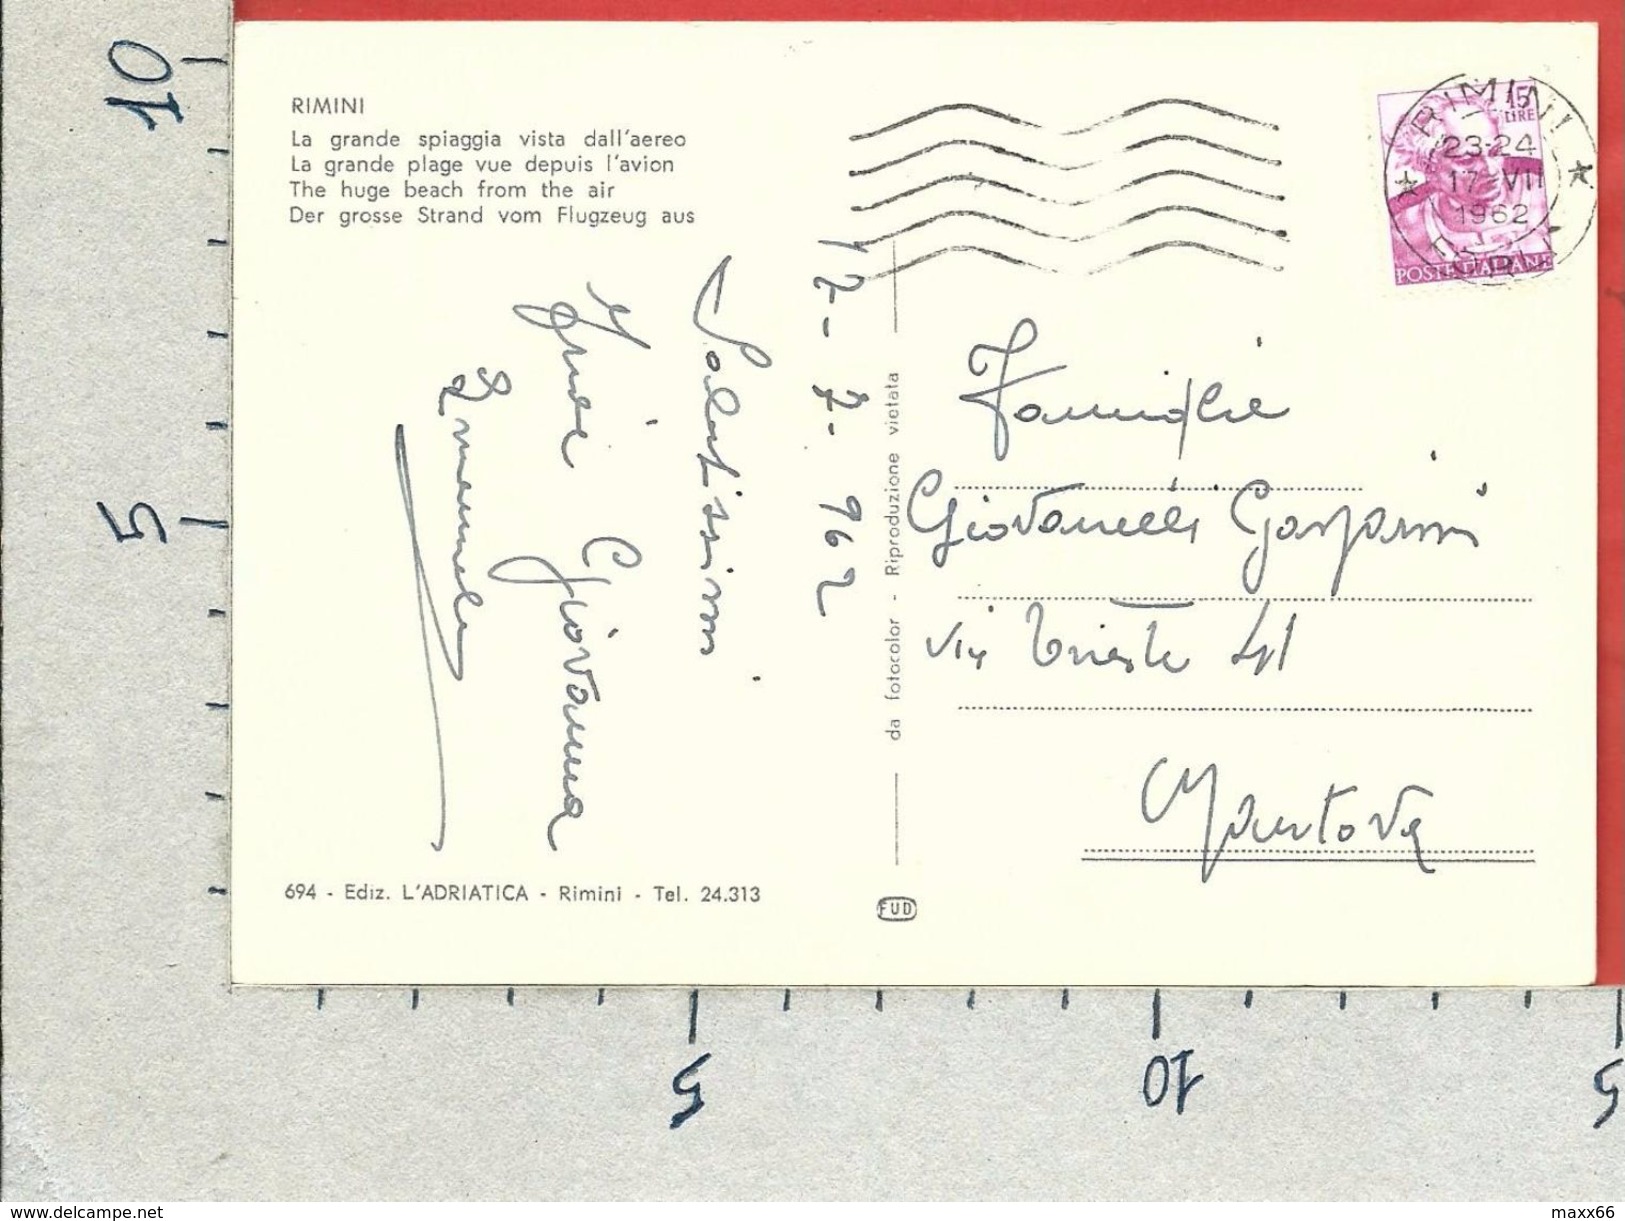 RIMINI
La grande spiaggia vista dall'aereo
La grande plage vue depuis l'avion
The huge beach from the air
Der grosse Strand vom Flugzeug aus
15
LIRE
POSTE ITALIANE
RIMINI
23-24
17-VII
1962
FORLÌ
17-7-962
Salutissimi
Giovanna
Emanuela
da fotocolor - Riproduzione vietata
Famiglie
Giovanelli Gasparini
Via Trieste 41
Mantova
694 - Ediz. L'ADRIATICA - Rimini - Tel. 24.313
FUD
10
5
5
10
5
www.delcampe.net
maxx66